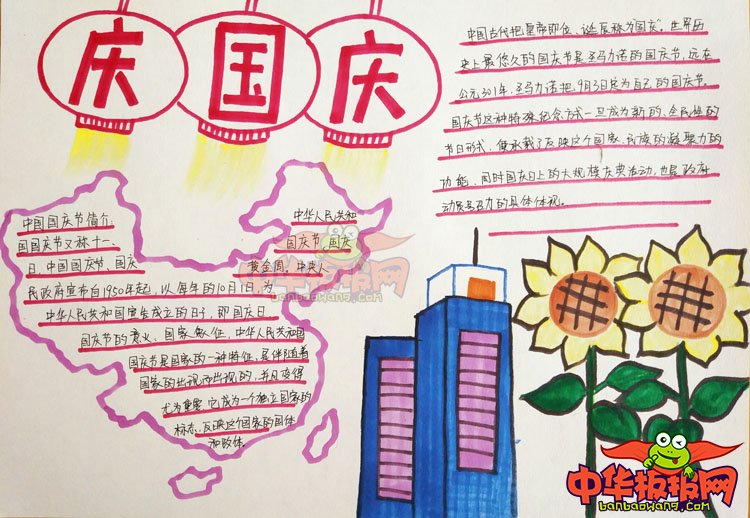 庆国庆
中国古代把皇帝即位、诞辰称为“国庆”。世界历
史上最悠久的国庆节是圣马力诺的国庆节,远在
公元301年,圣马力诺把9月3日定为自己的国庆节。
国庆节这种特殊纪念方式一旦成为新的、全民性的
节日形式,便承载了反映这个国家、民族的凝聚力的
功能。同时国庆日上的大规模庆典活动,也是政府
动员与号召力的具体体现。
中国国庆节简介:
中华人民共和
国国庆节又称十一、
国庆节、国庆
日、中国国庆节、国庆
黄金周。中央人
民政府宣布自1950年起,以每年的10月1日,为
中华人民共和国宣告成立的日子,即国庆日
国庆节的意义、国家象征,中华人民共和国
国庆节是国家的一种特征,是伴随着
国家的出现而出现的,并且变得
尤为重要,它成为一个独立国家的
标志,反映这个国家的国体
和政体
中华板报网
banbaowang.com
中华板报网
banbaowang.com